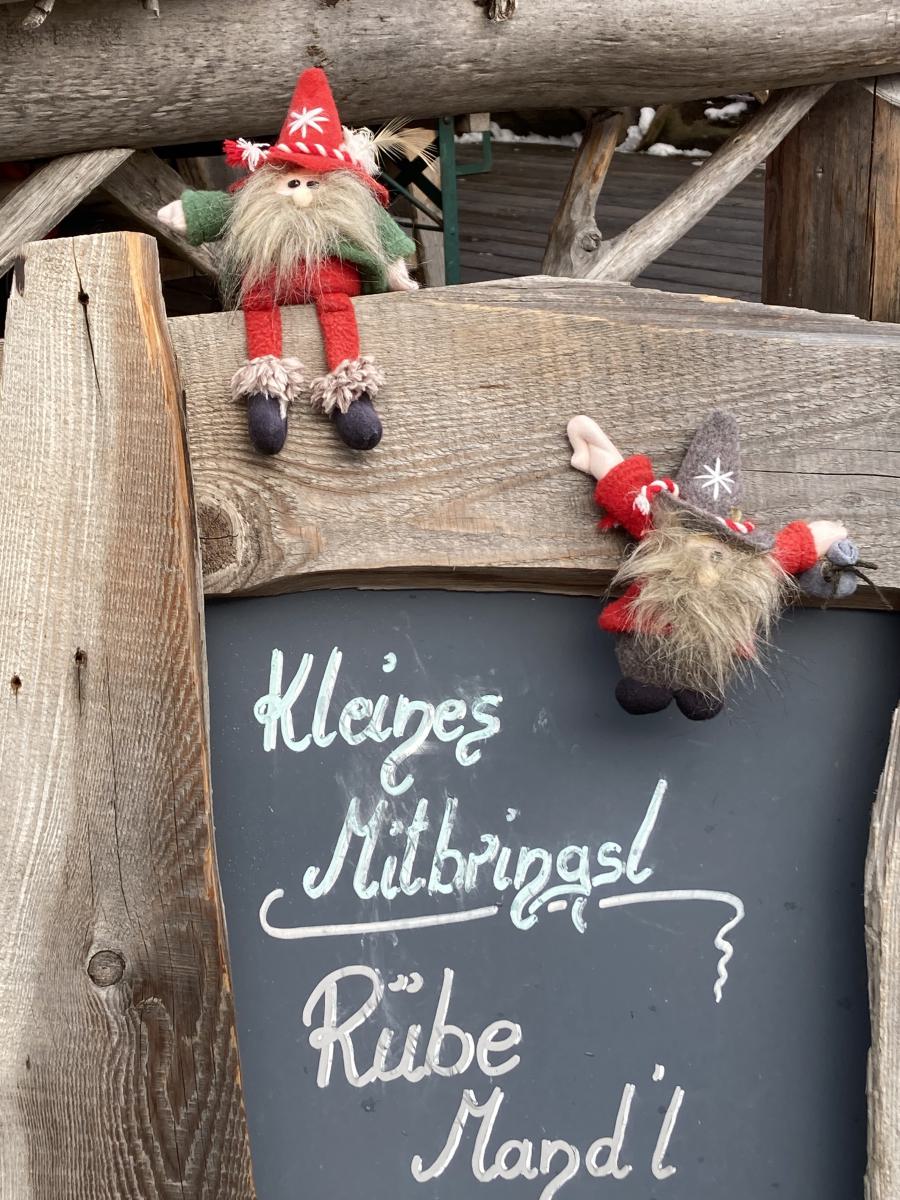 Kleines
Mitbringsl
Rübe
Mand'l